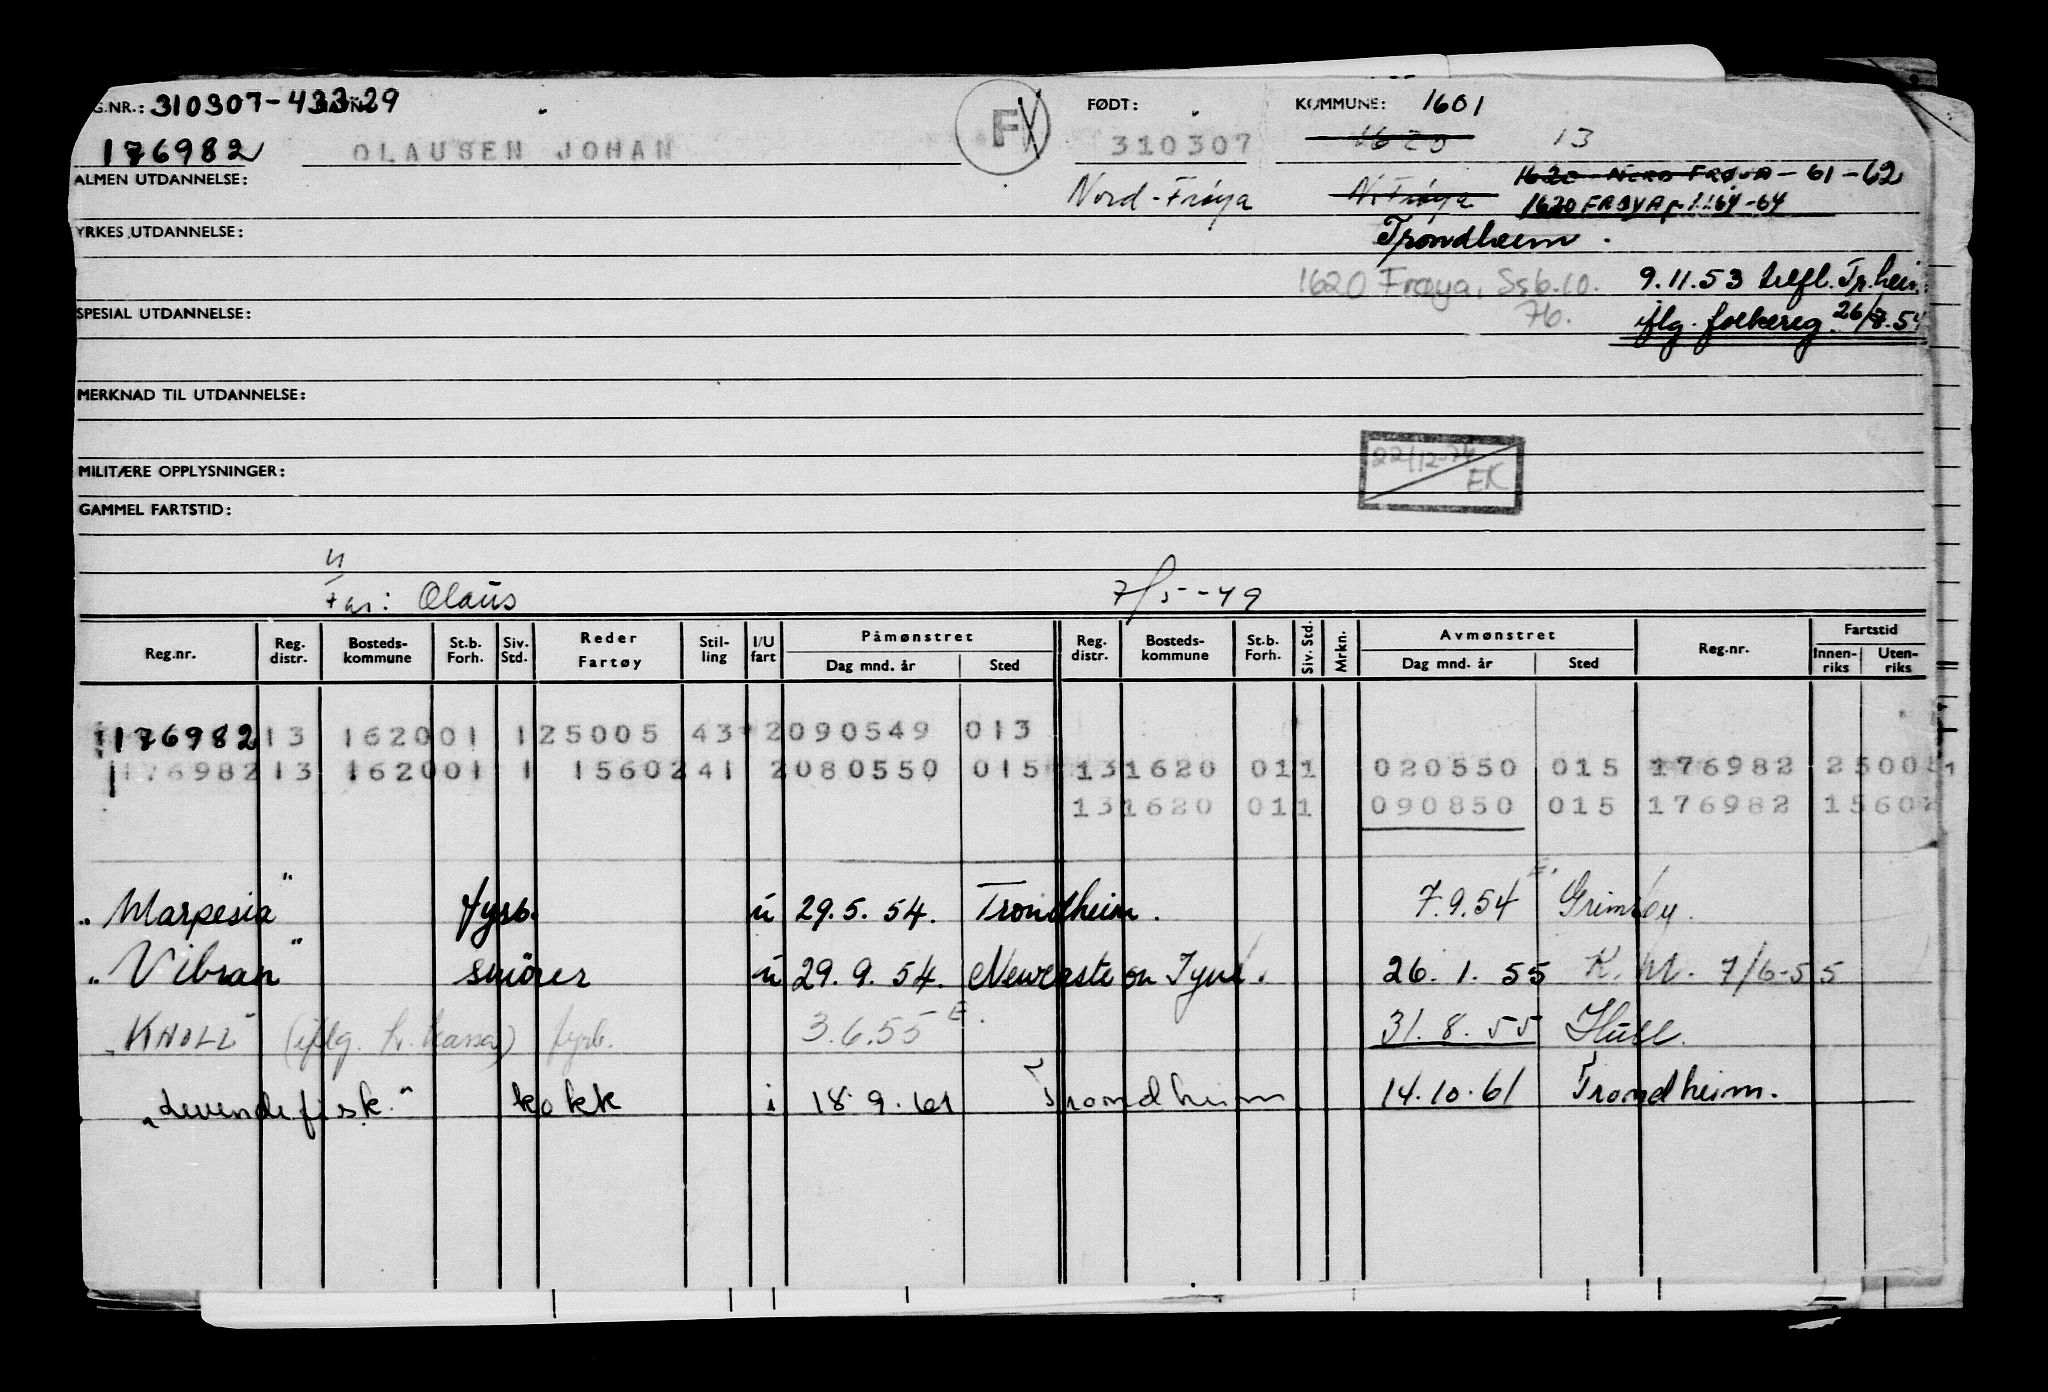 G.NR.: 310307-43329
176982 OLAUSEN JOHAN
F
FØDT:
310307
Nord-Frøya
KOMMUNE: 1601
1620 13
N. Frøya 1620 NORD FRØYA - 61-62
1620 FRØYA pr 1.1 64-64
Trondheim.
1620 Frøya, Ssb.10.
76.
9.11.53 tilfl. Tr.heim
iflg. folkereg. 26/7.54
ALMEN UTDANNELSE:
YRKES UTDANNELSE:
SPESIAL UTDANNELSE:
MERKNAD TIL UTDANNELSE:
MILITÆRE OPPLYSNINGER:
22/12-74
EK
GAMMEL FARTSTID:
Far: Olaus 7/5-49
Reg.nr. Reg. distr. Bosteds-kommune St.b. Forh. Siv. Std. Reder Fartøy Stil-ling I/U fart Påmønstret Dag mnd. år Sted Reg. distr. Bosteds-kommune St.b. Forh. Siv. Std. Mrkn. Avmønstret Dag mnd. år Sted Reg.nr. Fartstid Innen-riks Uten-riks
176982 13 162001 125005 43 2090549 013
176982 13 162001 1 15602 41 2080550 015 131620 011 020550 015 176982 25005
131620 011 090850 015 176982 15602
"Marpesia" fyrb. u 29.5.54. Trondheim. 7.9.54 Grimsby.
"Vibran" smörer u 29.9.54. Newcastle on Tyne. 26.1.55 K.M. 7/6-55
"KNOLL" (iflg. tr. kassa) fyrb. 3.6.55 E. 31.8.55 Hull.
"Levendefisk." kokk i 18.9.61 Trondheim 14.10.61 Trondheim.